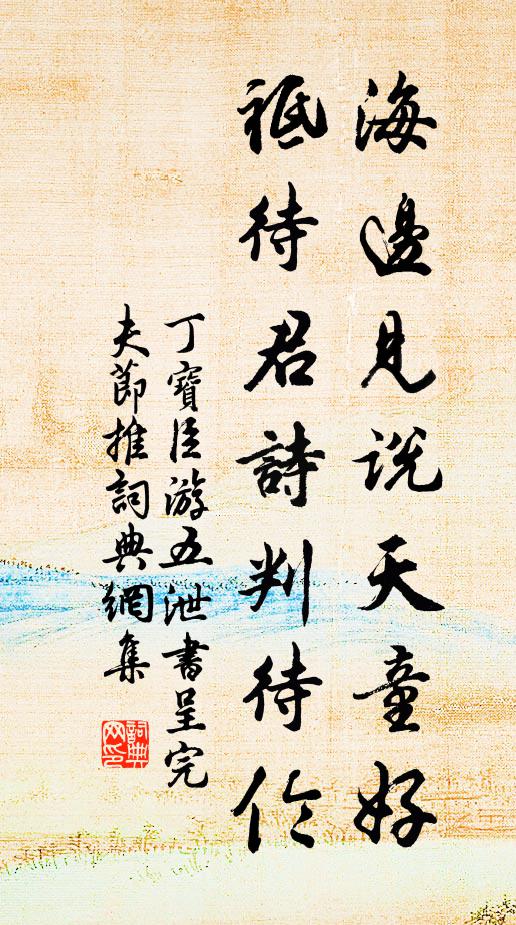 海邊見說天童好
祗待君詩判待
丁寶臣游五泄書呈完
夫節推詞典網集
詞典
网印